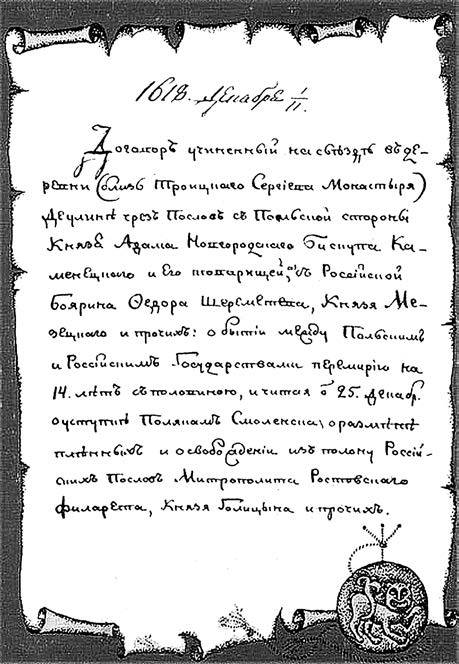 1618. Декабря 1/11.
Договоръ учиненный на съѣздѣ въ де-
ревни (близъ Троицкаго Сергіева Монастыря)
Деулинѣ чрезъ Пословъ съ Польской стороны
Князя Адама Новгородскаго Бискупа Ка-
менецкаго и его товарищей, а съ Россійской
Боярина Ѳедора Шереметева, Князя Ме-
зецкаго и прочихъ: о бытіи между Польскимъ
и Россійскимъ Государствами перемирію на
14. лѣтъ съ половиною, считая о 25. декабр.
о уступкѣ Полякам Смоленска, о размѣнѣ
плѣнныхъ и освобожденіи изъ полону Россій-
скихъ Пословъ Митрополита Ростовскаго
Филарета, Князя Голицына и прочихъ.